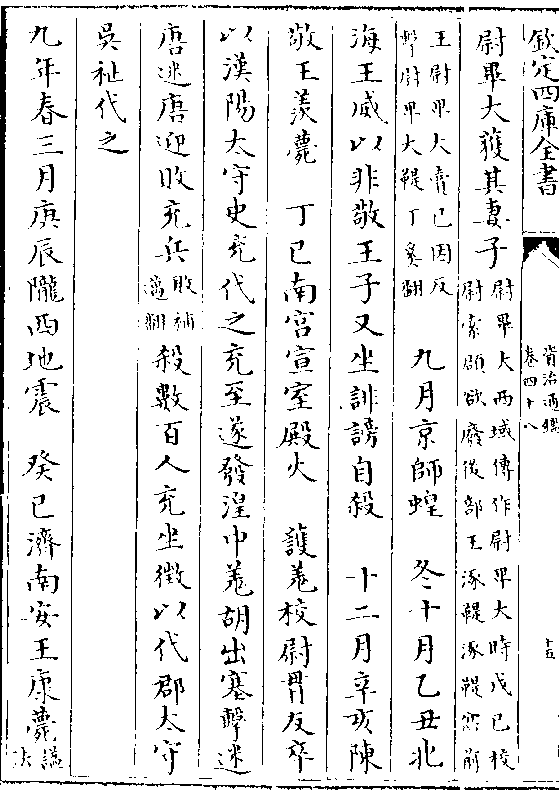 欽定四庫全書
資治通鑑
卷四十八
十五
尉畢大獲其妻子尉畢大西域傳作尉卑大時戊巳校
尉索頵欲廢後部王涿鞮涿鞮忿前
王尉畢大賣已因反
擊尉畢大鞮丁奚翻九月京師蝗 冬十月乙丑北
海王威以非敬王子又坐誹謗自殺 十二月辛亥陳
敬王羨薨 丁巳南宮宣室殿火 護羌校尉貫友卒
以漢陽太守史充代之充至遂發湟中羌胡出塞擊迷
唐迷唐迎敗充兵敗補
邁翻殺數百人充坐徵以代郡太守
吳祉代之
九年春三月庚辰隴西地震 癸巳濟南安王康薨諡
法